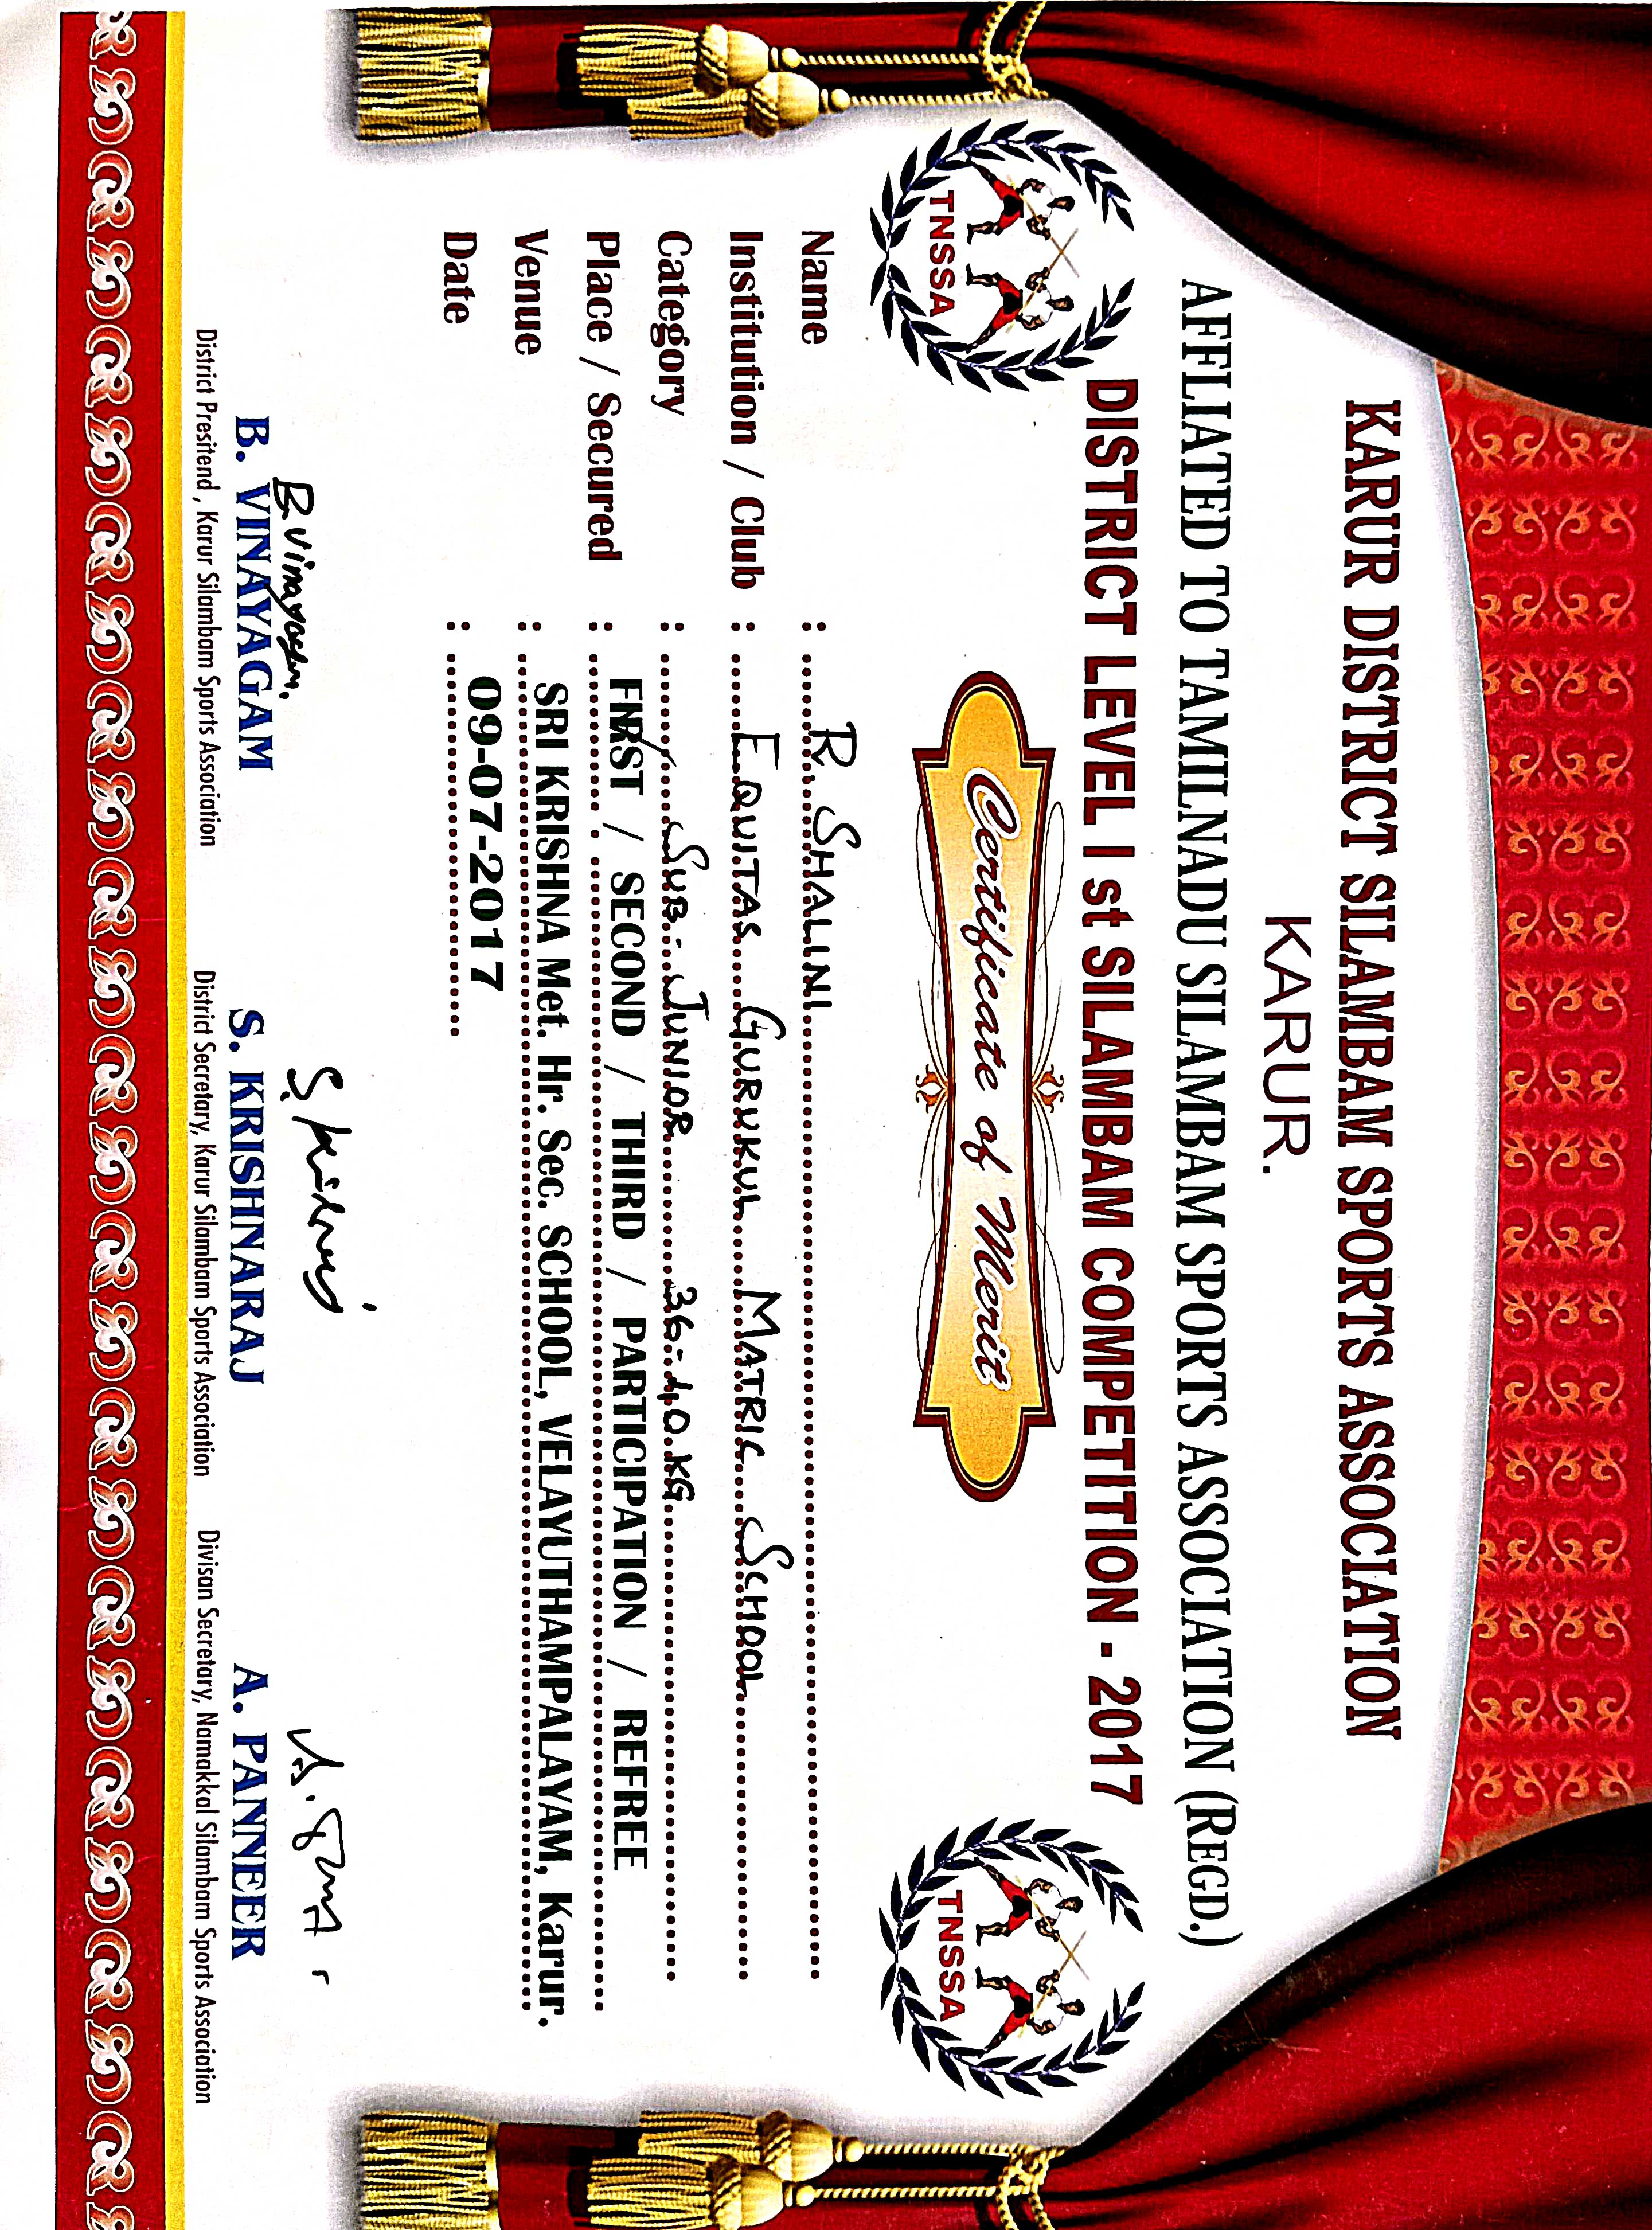 KARUR DISTRICT SILAMBAM SPORTS ASSOCIATION
KARUR.
AFFLIATED TO TAMILNADU SILAMBAM SPORTS ASSOCIATION (REGD.)
DISTRICT LEVEL I st SILAMBAM COMPETITION - 2017
TNSSA
TNSSA
Certificate of Merit
Name : R. SHALINI
Institution / Club : EQUITAS GURUKUL MATRIC SCHOOL
Category : SUB-JUNIOR 36-40 KG
Place / Secured : FIRST / SECOND / THIRD / PARTICIPATION / REFREE
Venue : SRI KRISHNA Met. Hr. Sec. SCHOOL, VELAYUTHAMPALAYAM, Karur.
Date : 09-07-2017
B. Vinayagam.
B. VINAYAGAM S. KRISHNARAJ A. PANNEER
District Presitend , Karur Silambam Sports Association District Secretary, Karur Silambam Sports Association Divisan Secretary, Namakkal Silambam Sports Association